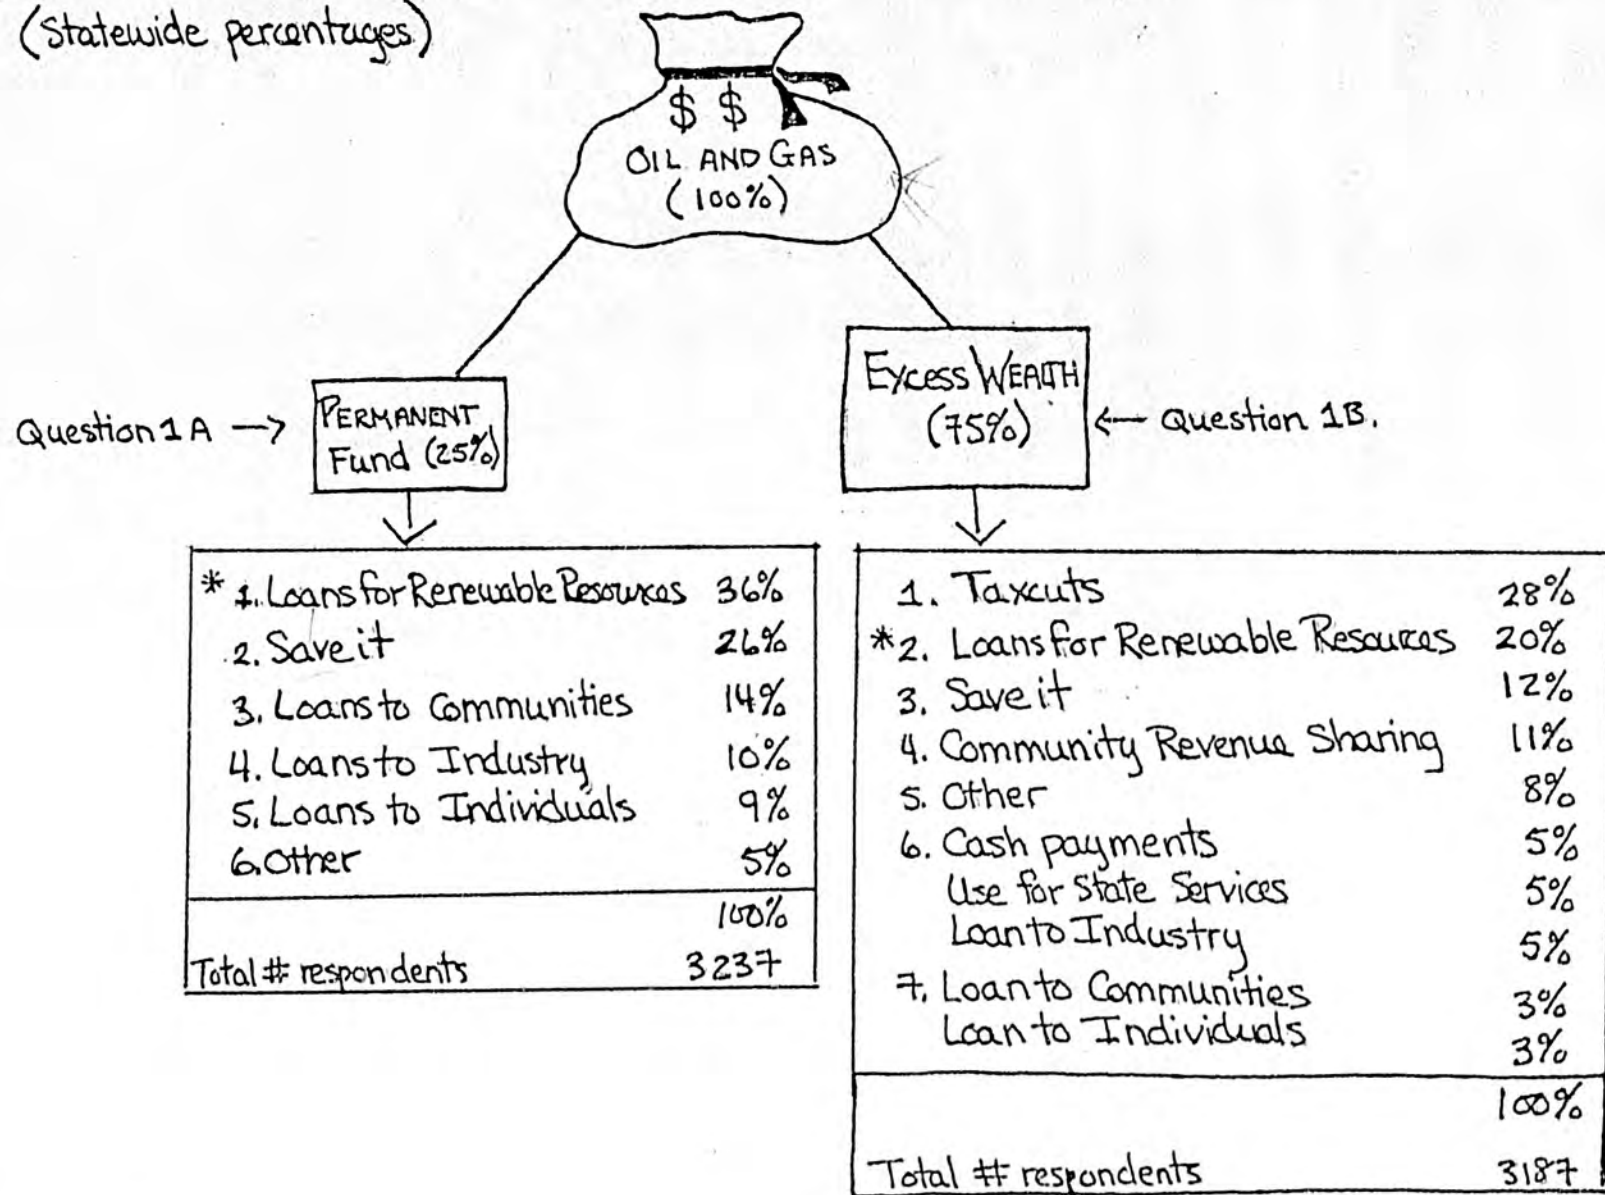 (Statewide percentages)
$ $
OIL AND GAS
(100%)
Question 1A →
PERMANENT
Fund (25%)
Excess WEALTH
(75%)
← Question 1B.
* 1. Loans for Renewable Resources 36%
2. Save it 26%
3. Loans to Communities 14%
4. Loans to Industry 10%
5. Loans to Individuals 9%
6. Other 5%
100%
Total # respondents 3237
1. Taxcuts 28%
*2. Loans for Renewable Resources 20%
3. Save it 12%
4. Community Revenue Sharing 11%
5. Other 8%
6. Cash payments 5%
Use for State Services 5%
Loan to Industry 5%
7. Loan to Communities 3%
Loan to Individuals 3%
100%
Total # respondents 3187